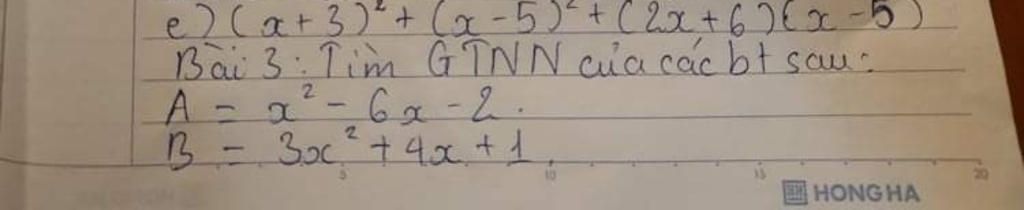 e) (x+3)² + (x-5)² + (2x+6)(x-5)
Bài 3: Tìm GTNN của các bt sau:
A = x² - 6x - 2.
B = 3x² + 4x + 1
5 10 15 20
HONG HA